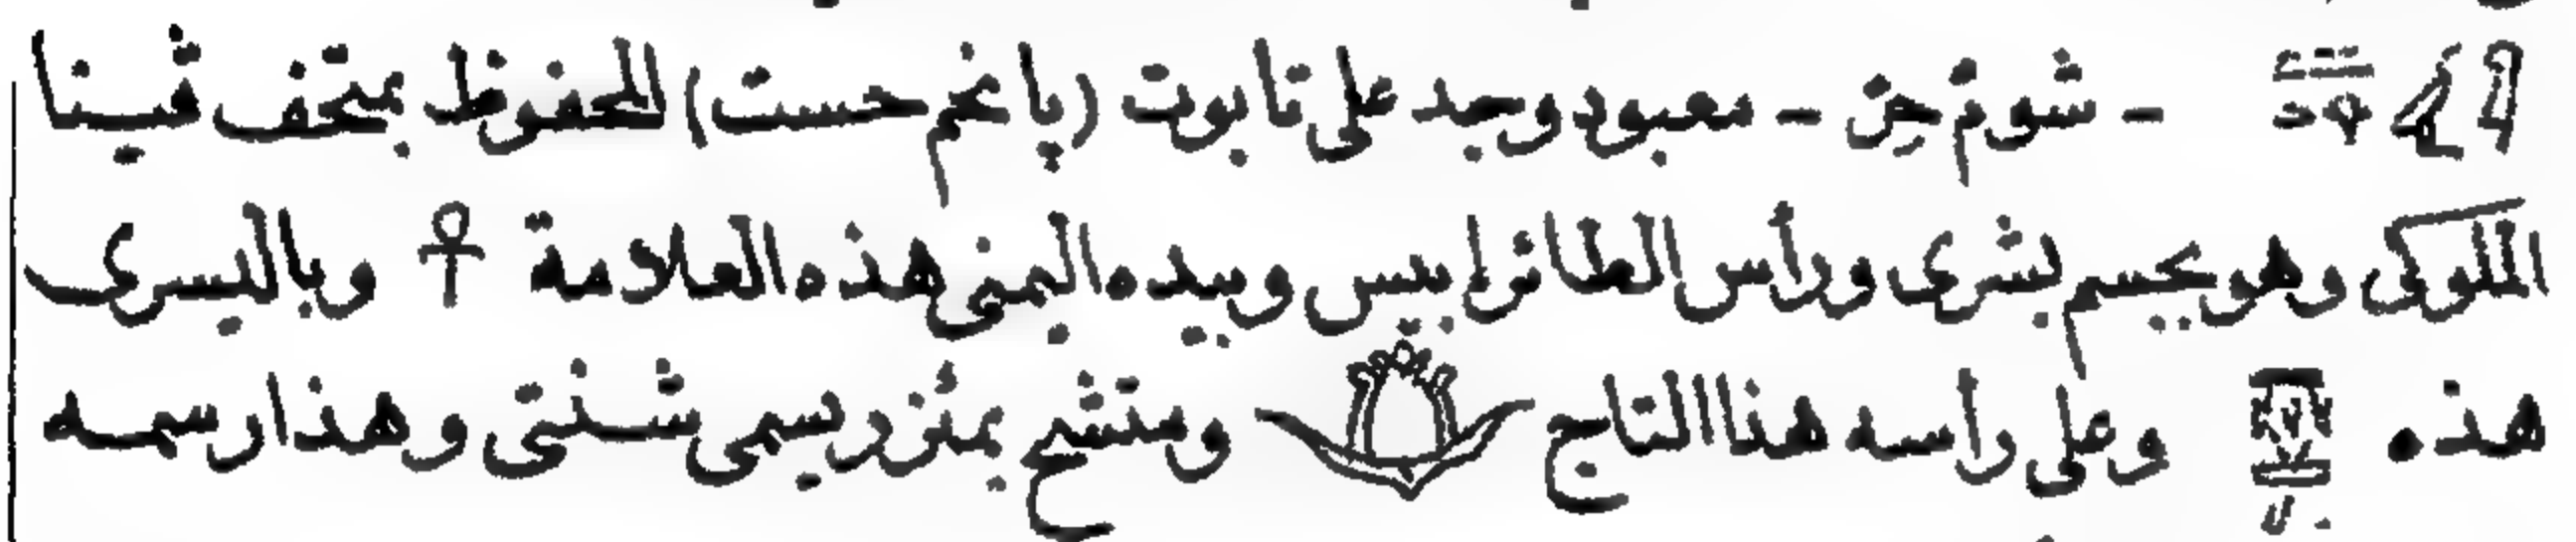 - شومْ حِنْ - معبود وجد على تابوت (پانخم حست) المحفوظ بمتحف ڤينا
الملوكى وهو بجسم بشرى ورأس الطائر ابيس وبيده اليمنى هذه العلامة ☥ وباليسرى
هذه وعلى رأسه هذا التاج ومتشح بمئزر يسمى شنتى وهذا رسمه